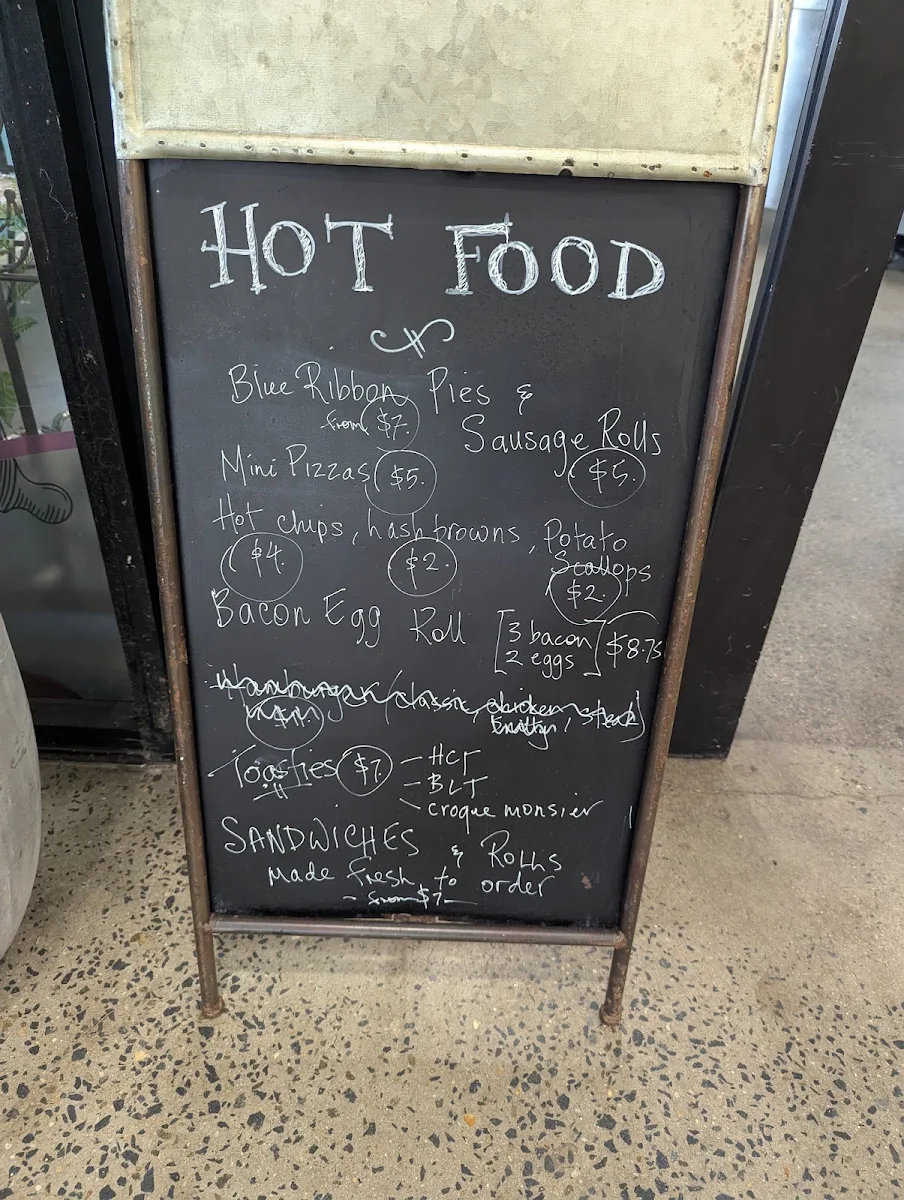 HOT FOOD
Blue Ribbon Pies &
from $7. Sausage Rolls
Mini Pizzas $5. $5.
Hot chips, hash browns, Potato
Scallops
$4. $2. $2.
Bacon Egg Roll [3 bacon 2 eggs] $8.75
Hamburger (classic, chicken, steak)
Toasties $7. - HCT
- BLT
- croque monsier
SANDWICHES & ROLLS
made fresh to order
- from $7 -